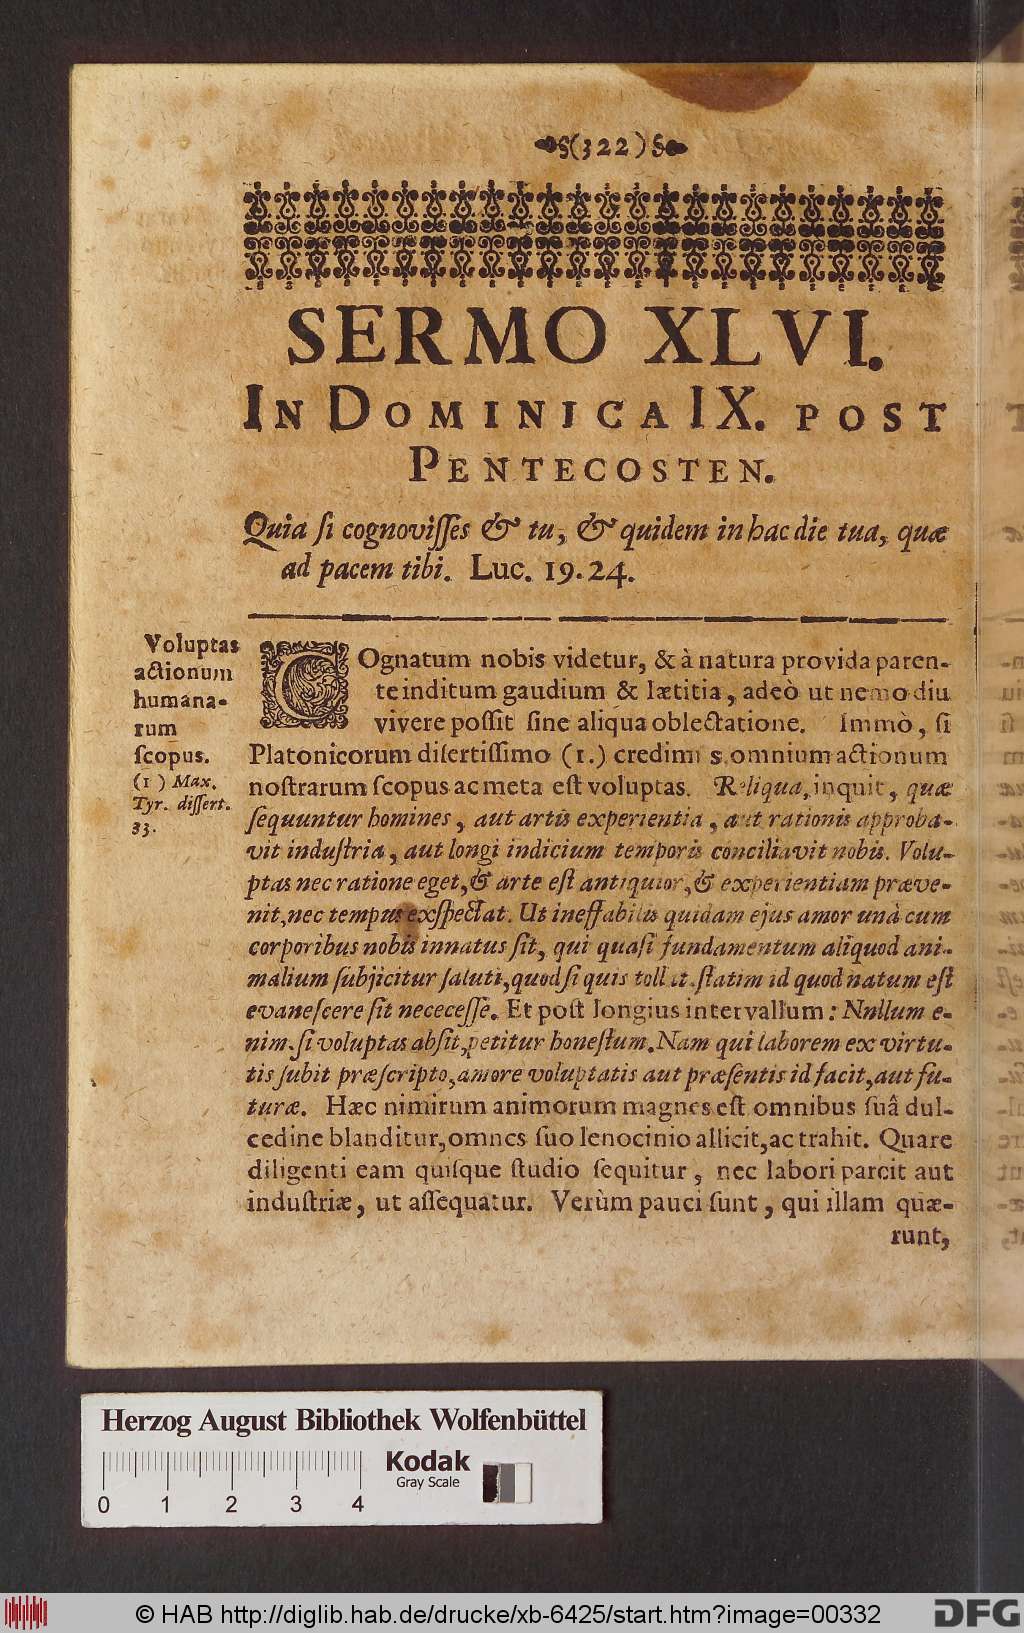 (322)
SERMO XLVI.
IN DOMINICA IX. POST
PENTECOSTEN.
Quia ſi cognoviſſes & tu, & quidem in hac die tua, quæ
ad pacem tibi. Luc. 19.24.
Voluptas
actionum
humana-
rum
ſcopus.
(1) Max.
Tyr. diſſert.
33.
COgnatum nobis videtur, & à natura provida paren-
te inditum gaudium & lætitia, adeò ut nemo diu
vivere poſſit ſine aliqua oblectatione. Immò, ſi
Platonicorum diſertiſſimo (1.) credimus omnium actionum
noſtrarum ſcopus ac meta eſt voluptas. Reliqua, inquit, quæ
ſequuntur homines, aut artis experientia, aut rationis approba-
vit induſtria, aut longi indicium temporis conciliavit nobis. Volu-
ptas nec ratione eget, & arte eſt antiquior, & experientiam præve-
nit, nec tempus exſpectat. Ut ineffabilis quidam ejus amor unà cum
corporibus nobis innatus ſit, qui quaſi fundamentum aliquod ani-
malium ſubjicitur ſaluti, quod ſi quis tollat. ſtatim id quod natum eſt
evaneſcere ſit nececeſſe. Et poſt longius intervallum: Nnllum e-
nim. ſi voluptas abſit, petitur honeſtum. Nam qui laborem ex virtu-
tis ſubit præſcripto, amore voluptatis aut præſentis id facit, aut fu-
turæ. Hæc nimirum animorum magnes eſt omnibus ſuâ dul-
cedine blanditur, omnes ſuo lenocinio allicit, ac trahit. Quare
diligenti eam quiſque ſtudio ſequitur, nec labori parcit aut
induſtriæ, ut aſſequatur. Verùm pauci ſunt, qui illam quæ-
runt,
Herzog August Bibliothek Wolfenbüttel
Kodak
Gray Scale
0 1 2 3 4
© HAB http://diglib.hab.de/drucke/xb-6425/start.htm?image=00332
DFG